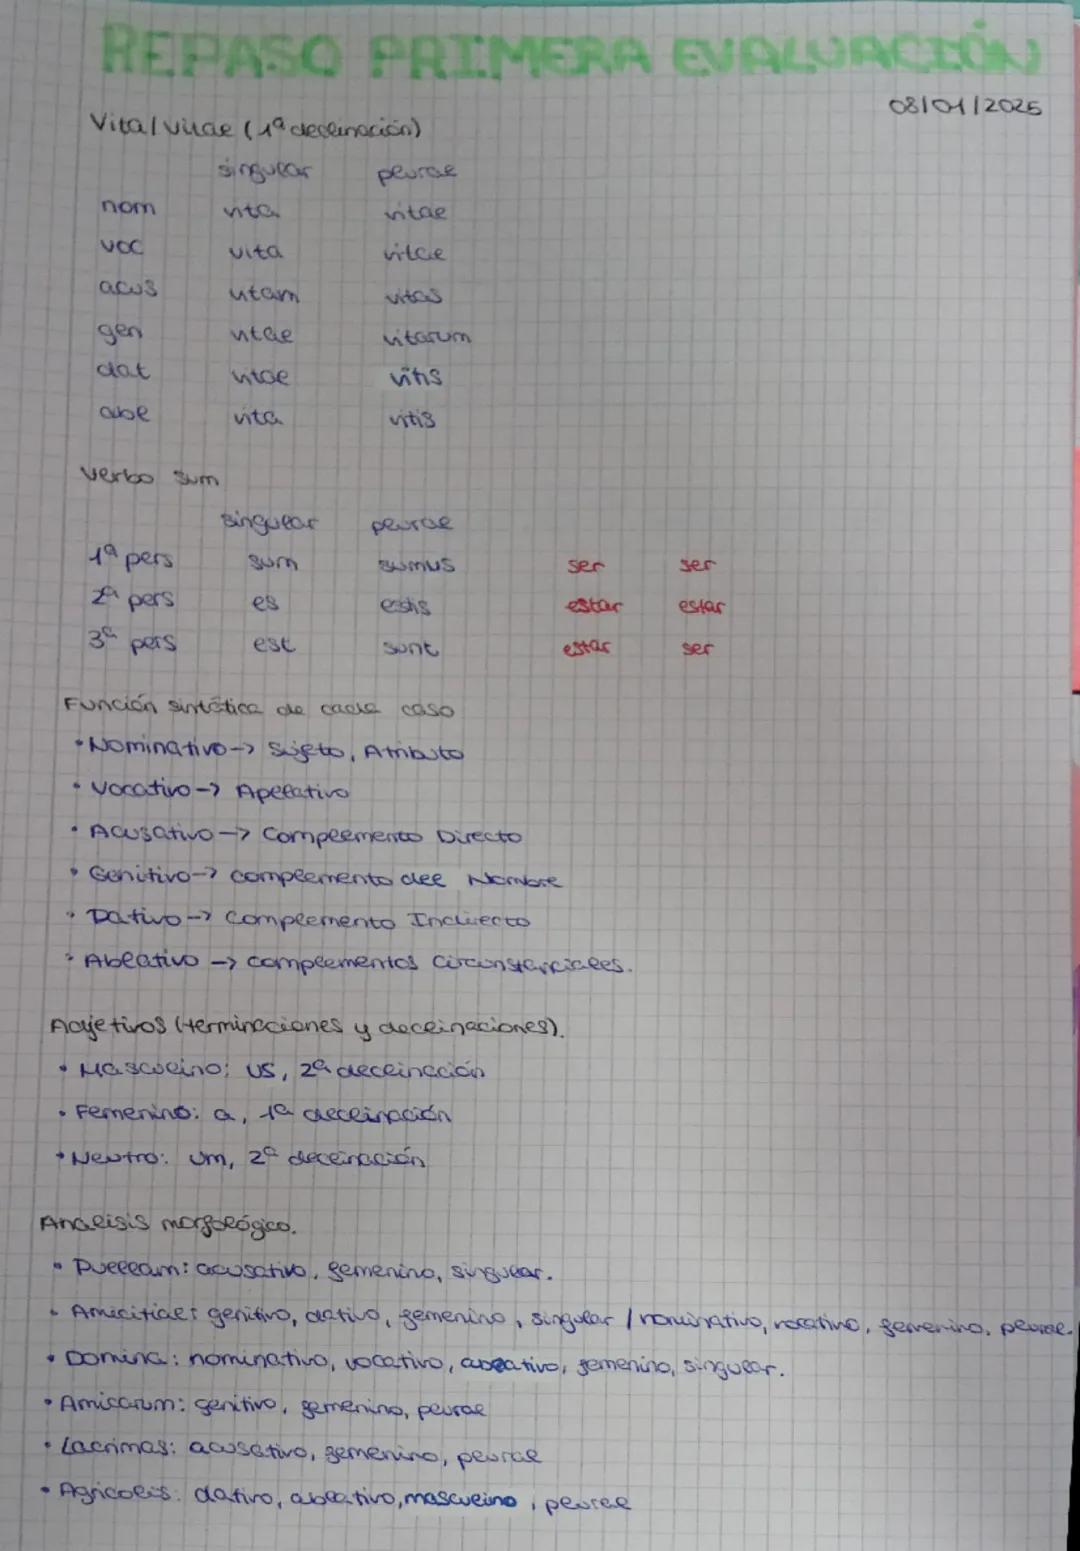 REPASO PRIMERA EVALUACIÓN
08/01/2025
Vita/vitae (1ª declinación)
singular plural
nom vita vitae
voc vita vitae
acus vitam vitas
gen vitae vitarum
dat vitae vitis
abl vita vitis
Verbo sum
singular plural
1ª pers sum sumus ser ser
2ª pers es estis estar estar
3ª pers est sunt estar ser
Función sintática de cada caso
• Nominativo -> Sujeto, Atributo
• Vocativo -> Apelativo
• Acusativo -> Complemento Directo
• Genitivo -> complemento del Nombre
• Dativo -> Complemento Indirecto
• Ablativo -> complementos circunstanciales.
Adjetivos (terminaciones y declinaciones).
• Masculino: us, 2ª declinación
• Femenino: a, 1ª declinación
• Neutro: um, 2ª declinación
Analisis morfológico.
• Puellam: acusativo, femenino, singular.
• Amicitiae: genitivo, dativo, femenino, singular / nominativo, vocativo, femenino, plural.
• Domina: nominativo, vocativo, ablativo, femenino, singular.
• Amicarum: genitivo, femenino, plural
• Lacrimas: acusativo, femenino, plural
• Agricolis: dativo, ablativo, masculino, plural